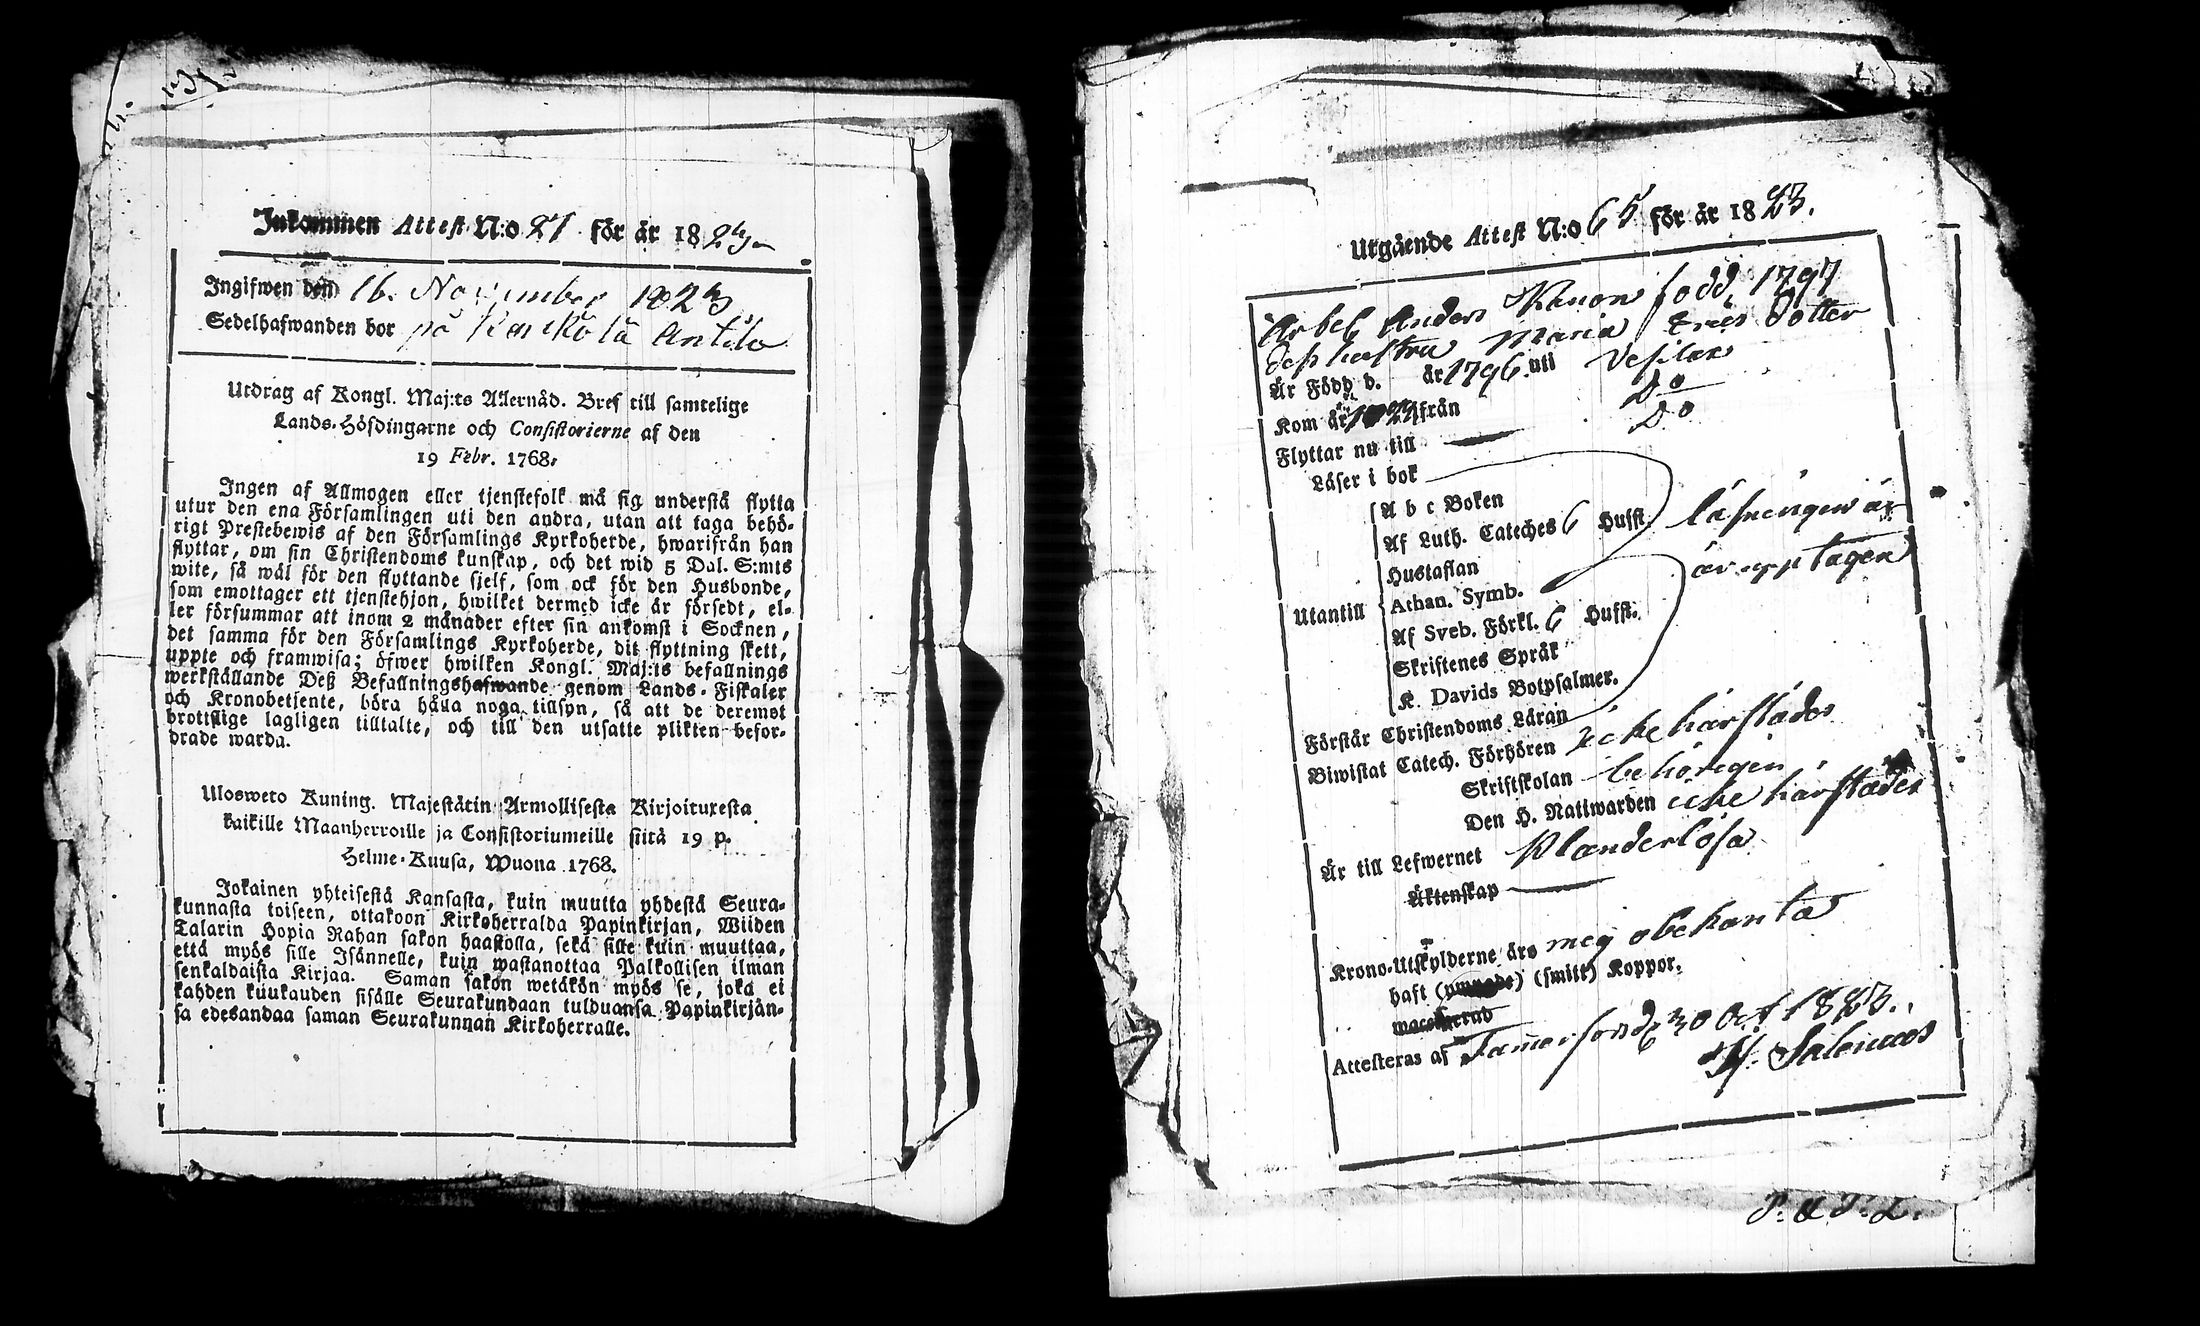 Inkommen Attest N:o 27 för år 1823
Ingifwen den 16. November 1823
Sedelhafwanden bor på Antila
Utdrag af Kongl. Maj:ts Allernåd. Bref till samtelige
Lands-Höfdingarne och Consistorierne af den
19 Febr. 1768.
Ingen af Allmogen eller tjenstefolk må sig understå flytta
utur den ena Församlingen uti den andra, utan att taga behö-
rigt Prestebewis af den Församlings Kyrkoherde, hwarifrån han
flyttar, om sin Christendoms kunskap, och det wid 5 Dal. S:mts
wite, så wäl för den flyttande sjelf, som ock för den Husbonde,
som emottager ett tjenstehjon, hwilket dermed icke är försedt, el-
ler försummar att inom 2 månader efter sin ankomst i Socknen,
det samma för den Församlings Kyrkoherde, dit flyttning skett,
uppte och framwisa; öfwer hwilken Kongl. Maj:ts befallnings
werkställande Deß Befallningshafwande genom Lands-Fiskaler
och Kronobetjente, böra hålla noga tillsyn, så att de deremot
brottslige lagligen tilltalte, och till den utsatte plikten befor-
drade warda.
Ulosweto Kuning. Majestätin Armollisesta Kirjoituxesta
kaikille Maanherroille ja Consistoriumeille siitä 19 p.
Helme-Kuusa, Wuona 1768.
Jokainen yhteisestä Kansasta, kuin muutta yhdestä Seura-
kunnasta toiseen, ottakoon Kirkoherralda Papinkirjan, Wiiden
Talarin Hopia Rahan sakon haastolla, sekä sille kuin muuttaa,
että myös sille Isännelle, kuin wastanottaa Palkollisen ilman
senkaldaista Kirjaa. Saman sakon wetäkön myös se, joka ei
kahden kuukauden sisälle Seurakundaan tulduansa Papinkirjän-
sa edesandaa saman Seurakunnan Kirkoherralle.
Utgående Attest N:o 65 för år 1823.
Arbet. Anders född 1797
dess hustru Maria Ericsdotter
Är Född d. år 1796 uti Vesilax
Kom år från Do
Flyttar nu till Do
Läser i bok
A b c Boken
Af Luth. Cateches 6 Hufst. läsningen är
Hustaflan
Athan. Symb. är upptagen
Utantill
Af Sveb. Förkl. 6 Hufst.
Skriftenes Språk
K. Davids Botpsalmer.
Förstår Christendoms Läran
Biwistat Catech. Förhören icke härstädes
Skriftskolan behörigen
Den H. Nattwarden icke härstädes
Är till Lefwernet Klanderlösa
Äktenskap
Krono-Utskylderne äro mig obekanta
haft (smitt) Koppor.
Attesteras af Tamerfors d. 30 Oct 1823.
Salenius
P. & P. L.